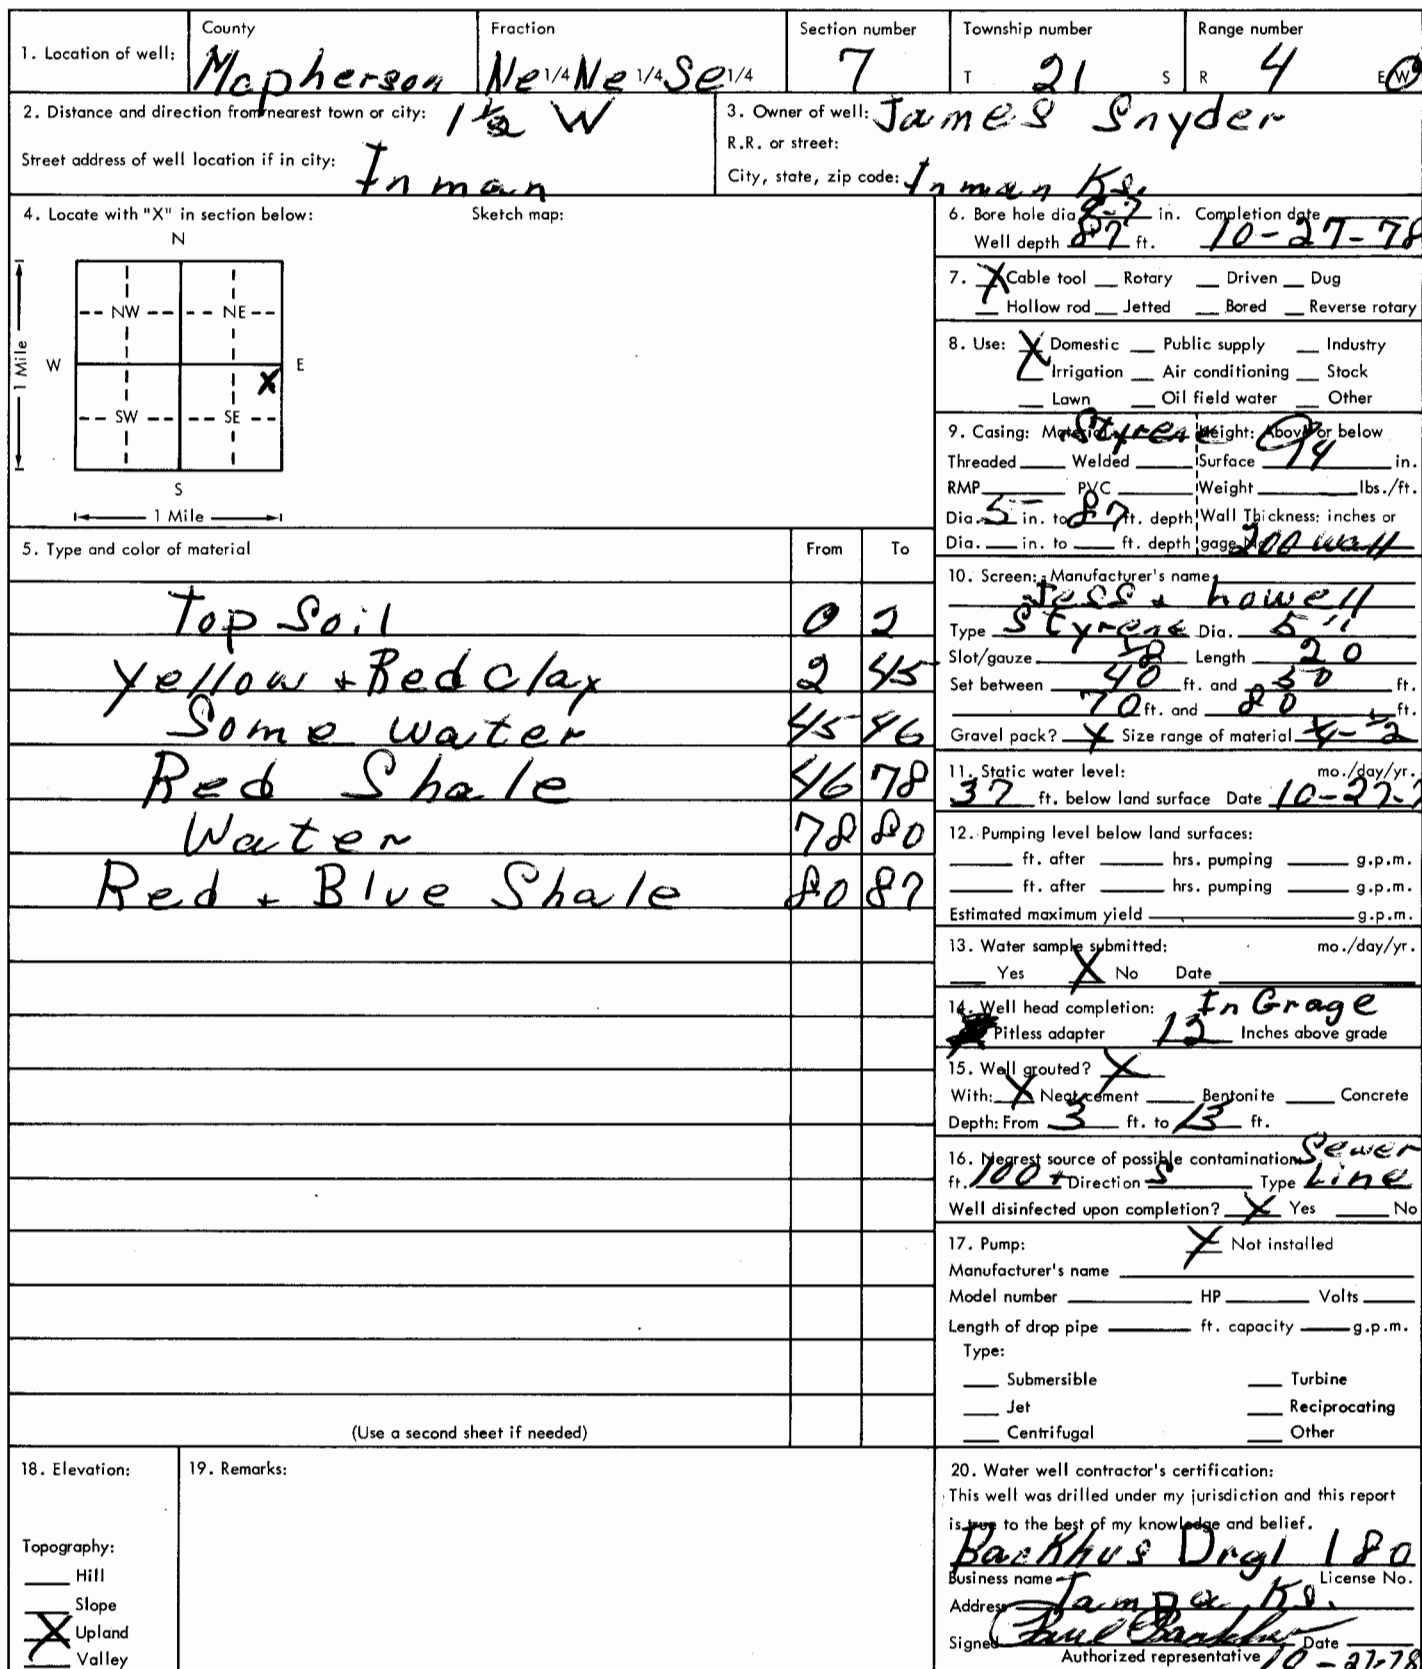 County Fraction Section number Township number Range number
1. Location of well: Mcpherson Ne 1/4 Ne 1/4 Se 1/4 7 T 21 S R 4 E W
2. Distance and direction from nearest town or city: 1 1/2 W
Street address of well location if in city: Inman
3. Owner of well: James Snyder
R.R. or street:
City, state, zip code: Inman Ks.
4. Locate with "X" in section below: Sketch map:
N
NW NE
W E
X
SW SE
S
1 Mile
1 Mile
5. Type and color of material From To
Top Soil 0 2
Yellow + Red Clay 2 45
Some water 45 46
Red Shale 46 78
Water 78 80
Red + Blue Shale 80 87
(Use a second sheet if needed)
6. Bore hole dia 9-7 in. Completion date
Well depth 87 ft. 10-27-78
7. X Cable tool Rotary Driven Dug
Hollow rod Jetted Bored Reverse rotary
8. Use: X Domestic Public supply Industry
Irrigation Air conditioning Stock
Lawn Oil field water Other
9. Casing: Material Styrene Height: Above or below
Threaded Welded Surface in.
RMP PVC Weight lbs./ft.
Dia. 5 in. to 87 ft. depth Wall Thickness: inches or
Dia. in. to ft. depth gage No. 200 wall
10. Screen: Manufacturer's name
Jess + howell
Type Styrene Dia. 5"
Slot/gauze 1/8 Length 20
Set between 40 ft. and 50 ft.
70 ft. and 80 ft.
Gravel pack? X Size range of material 1/4-1/2
11. Static water level: mo./day/yr.
37 ft. below land surface Date 10-27-7
12. Pumping level below land surfaces:
ft. after hrs. pumping g.p.m.
ft. after hrs. pumping g.p.m.
Estimated maximum yield g.p.m.
13. Water sample submitted: mo./day/yr.
Yes X No Date
14. Well head completion: In Grage
Pitless adapter 12 Inches above grade
15. Well grouted? X
With: X Neat cement Bentonite Concrete
Depth: From 3 ft. to 13 ft.
16. Nearest source of possible contamination: Sewer
ft. 100 + Direction S Type Line
Well disinfected upon completion? X Yes No
17. Pump: X Not installed
Manufacturer's name
Model number HP Volts
Length of drop pipe ft. capacity g.p.m.
Type:
Submersible Turbine
Jet Reciprocating
Centrifugal Other
18. Elevation:
Topography:
Hill
Slope
X Upland
Valley
19. Remarks:
20. Water well contractor's certification:
This well was drilled under my jurisdiction and this report
is true to the best of my knowledge and belief.
Backhus Drgl 180
Business name License No.
Address Tampa Ks.
Signed Paul Backhus Date
Authorized representative 10-27-78